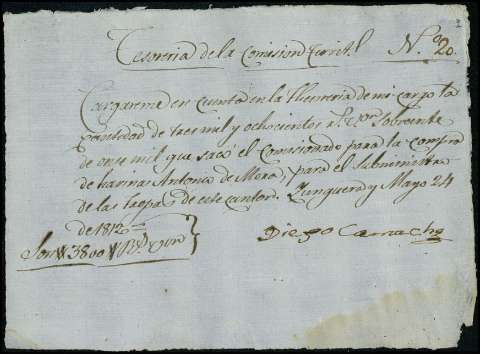 Tesoreria de la Comision Territ.l N.o 20
Cargareme en cuenta en la Thesoreria de mi cargo la
cantidad de tres mil y ochocientos r.s v.on sobrante
de once mil que sacó el Comisionado para la compra
de harinas Antonio de Mora, para el Subministro
de las tropas de este canton. Junquera y Mayo 24
de 1812
Son 3800 R.s
Diego Camacho